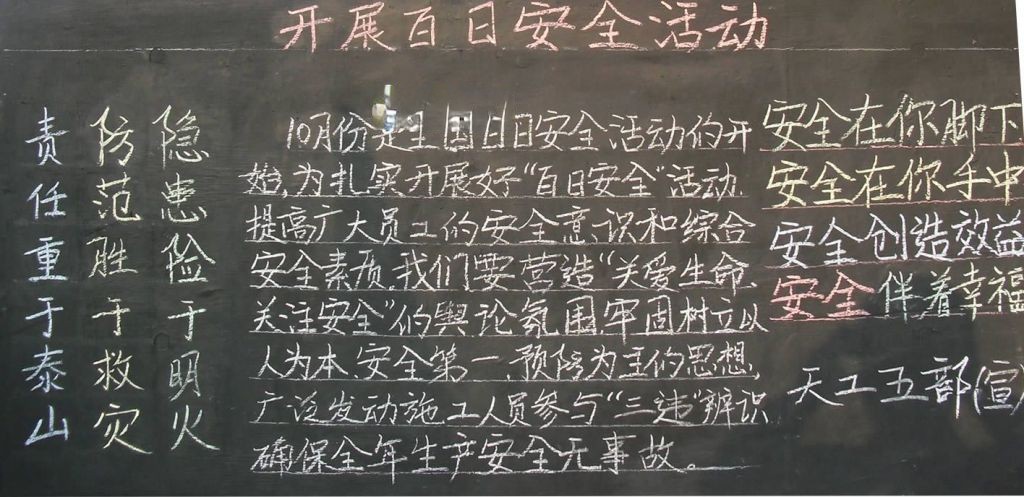 开展百日安全活动
隐患险于明火
防范胜于救灾
责任重于泰山
10月份是全国百日安全活动的开
始,为扎实开展好“百日安全”活动.
提高广大员工的安全意识和综合
安全素质.我们要营造“关爱生命.
关注安全”的舆论氛围牢固树立以
人为本.安全第一.预防为主的思想,
广泛发动施工人员参与“三违”辨识
确保全年生产安全无事故。
安全在你脚下
安全在你手中
安全创造效益
安全伴着幸福
天工五部(宣)